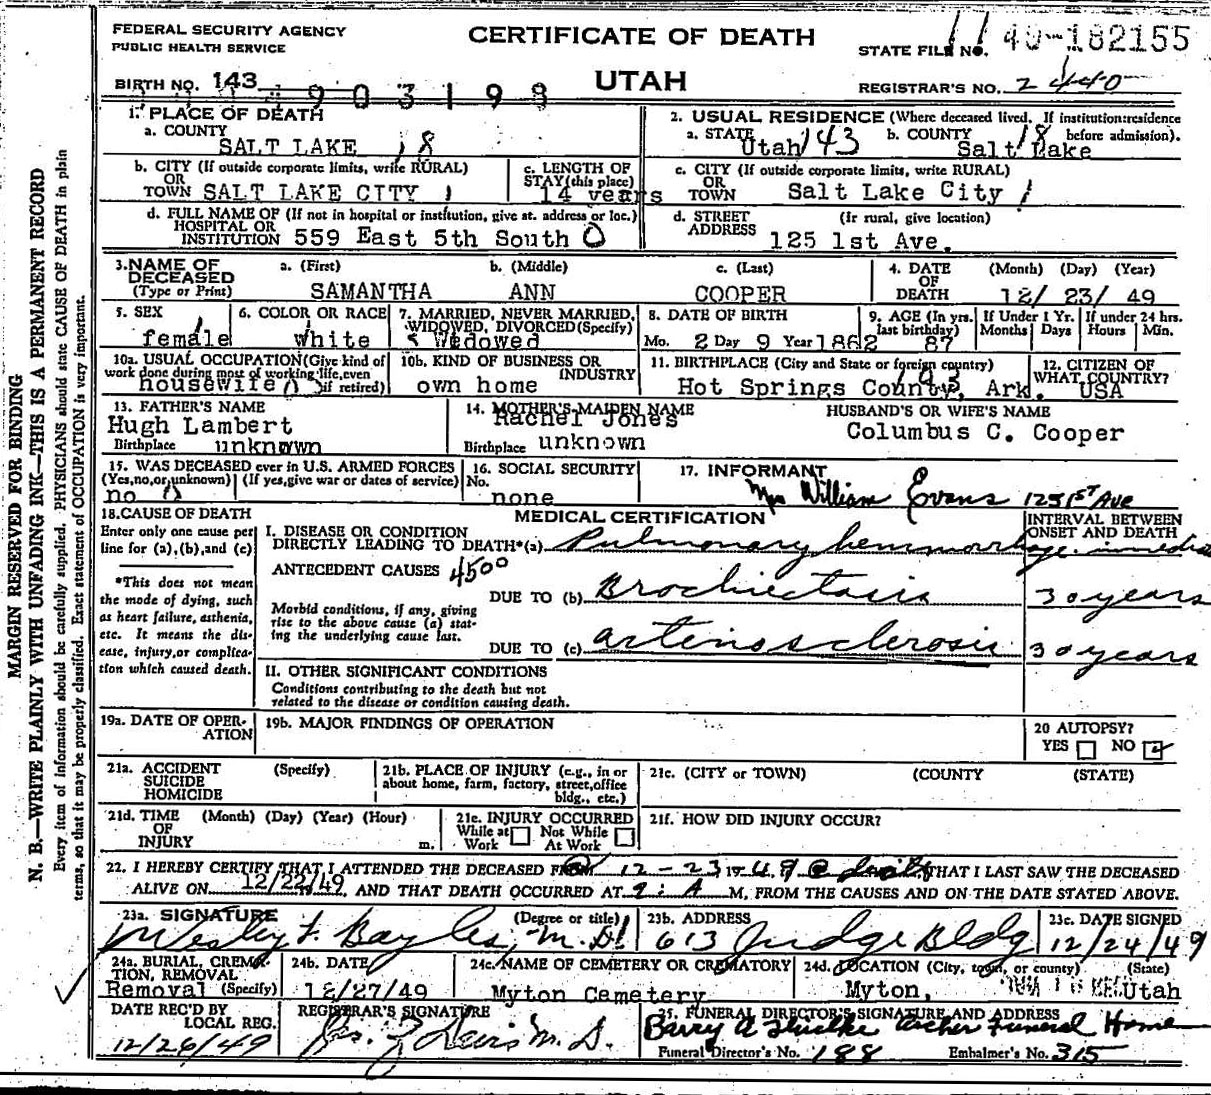 FEDERAL SECURITY AGENCY
PUBLIC HEALTH SERVICE
CERTIFICATE OF DEATH
UTAH
STATE FILE NO. 49-182155
BIRTH NO. 143
903198
REGISTRAR'S NO. 2440
1. PLACE OF DEATH
a. COUNTY
SALT LAKE 18
b. CITY (If outside corporate limits, write RURAL)
OR
TOWN SALT LAKE CITY 1
c. LENGTH OF
STAY (this place)
14 years
d. FULL NAME OF (If not in hospital or institution, give st. address or loc.)
HOSPITAL OR
INSTITUTION 559 East 5th South 0
2. USUAL RESIDENCE (Where deceased lived. If institution: residence
before admission).
a. STATE Utah 143
b. COUNTY 18 Salt Lake
c. CITY (If outside corporate limits, write RURAL)
OR
TOWN Salt Lake City 1
d. STREET (If rural, give location)
ADDRESS 125 1st Ave.
3. NAME OF
DECEASED
(Type or Print)
a. (First) b. (Middle) c. (Last)
SAMANTHA ANN COOPER
4. DATE
OF
DEATH
(Month) (Day) (Year)
12/ 23/ 49
5. SEX
female
6. COLOR OR RACE
white
7. MARRIED, NEVER MARRIED,
WIDOWED, DIVORCED (Specify)
Widowed
8. DATE OF BIRTH
Mo. 2 Day 9 Year 1862
9. AGE (In yrs.
last birthday)
87
If Under 1 Yr.
Months Days
If under 24 hrs.
Hours Min.
10a. USUAL OCCUPATION (Give kind of
work done during most of working life, even
if retired)
housewife
10b. KIND OF BUSINESS OR
INDUSTRY
own home
11. BIRTHPLACE (City and State or foreign country)
Hot Springs County, Ark.
12. CITIZEN OF
WHAT COUNTRY?
USA
13. FATHER'S NAME
Hugh Lambert
Birthplace unknown
14. MOTHER'S MAIDEN NAME
Rachel Jones
Birthplace unknown
HUSBAND'S OR WIFE'S NAME
Columbus C. Cooper
15. WAS DECEASED ever in U.S. ARMED FORCES
(Yes, no, or unknown) (If yes, give war or dates of service)
no 0
16. SOCIAL SECURITY
No.
none
17. INFORMANT
Mrs William Evans 125 1ST Ave
18. CAUSE OF DEATH
Enter only one cause per
line for (a), (b), and (c)
*This does not mean
the mode of dying, such
as heart failure, asthenia,
etc. It means the dis-
ease, injury, or complica-
tion which caused death.
MEDICAL CERTIFICATION
INTERVAL BETWEEN
ONSET AND DEATH
I. DISEASE OR CONDITION
DIRECTLY LEADING TO DEATH* (a) Pulmonary hemmorrhage immediate
ANTECEDENT CAUSES 4500
DUE TO (b) Brochiectasis 30 years
Morbid conditions, if any, giving
rise to the above cause (a) stat-
ing the underlying cause last.
DUE TO (c) arteriosclerosis 30 years
II. OTHER SIGNIFICANT CONDITIONS
Conditions contributing to the death but not
related to the disease or condition causing death.
19a. DATE OF OPER-
ATION
19b. MAJOR FINDINGS OF OPERATION
20 AUTOPSY?
YES NO
21a. ACCIDENT (Specify)
SUICIDE
HOMICIDE
21b. PLACE OF INJURY (e.g., in or
about home, farm, factory, street, office
bldg., etc.)
21c. (CITY or TOWN) (COUNTY) (STATE)
21d. TIME (Month) (Day) (Year) (Hour)
OF
INJURY m.
21e. INJURY OCCURRED
While at Work Not While At Work
21f. HOW DID INJURY OCCUR?
22. I HEREBY CERTIFY THAT I ATTENDED THE DECEASED FROM 12-23 1949 @ death THAT I LAST SAW THE DECEASED
ALIVE ON 12/22/49 AND THAT DEATH OCCURRED AT 9: A M., FROM THE CAUSES AND ON THE DATE STATED ABOVE.
23a. SIGNATURE (Degree or title)
Wesley F. Bayles, M.D.
23b. ADDRESS
613 Judge Bldg
23c. DATE SIGNED
12/24/49
24a. BURIAL, CREMA-
TION, REMOVAL
Removal (Specify)
24b. DATE
12/27/49
24c. NAME OF CEMETERY OR CREMATORY
Myton Cemetery
24d. LOCATION (City, town, or county) (State)
Myton, Utah
DATE REC'D BY
LOCAL REG.
12/26/49
REGISTRAR'S SIGNATURE
M.D.
25. FUNERAL DIRECTOR'S SIGNATURE AND ADDRESS
Barry A Archer Funeral Home
Funeral Director's No. 188 Embalmer's No. 315
MARGIN RESERVED FOR BINDING
N. B.—WRITE PLAINLY WITH UNFADING INK—THIS IS A PERMANENT RECORD
Every item of information should be carefully supplied. PHYSICIANS should state CAUSE OF DEATH in plain
terms, so that it may be properly classified. Exact statement of OCCUPATION is very important.